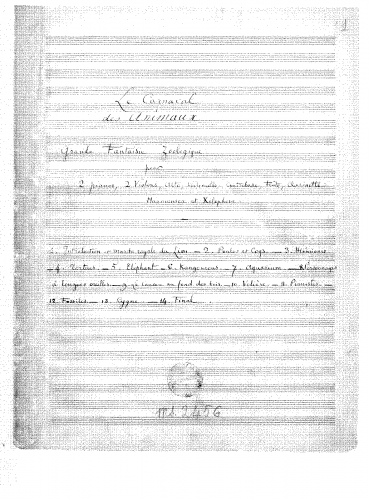 1
Le Carnaval
des Animaux
Grande Fantaisie Zoologique
pour
2 pianos, 2 Violons, alto, violoncelle, contrebasse, flûte, clarinette
Harmonica et Xylophone
1. Introduction et marche royale du Lion — 2. Poules et Coqs — 3. Hémiones
— 4. Tortues — 5. Eléphant — 6. Kangourous — 7. Aquarium — 8. Personnages
à longues oreilles — 9. Le Coucou au fond des bois — 10. Volière — 11. Pianistes —
12. Fossiles — 13. Cygne — 14. Final
Ms 2456